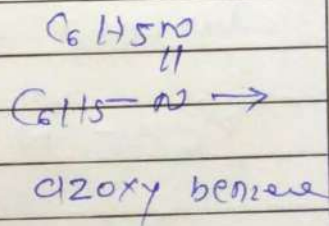 C6H5N
||
C6H5-N→
azoxy benzene